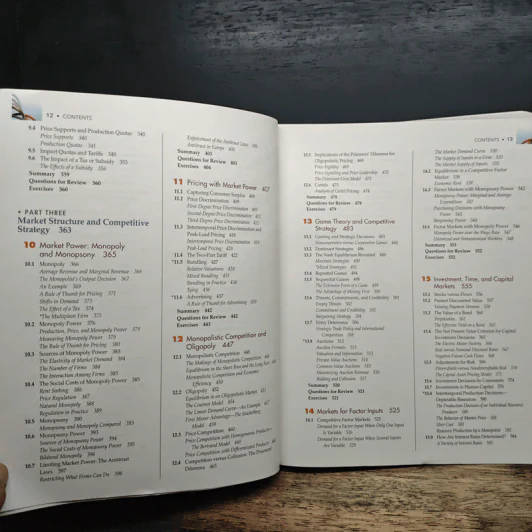 12 • CONTENTS
9.4 Price Supports and Production Quotas 340
Price Supports 340
Production Quotas 341
9.5 Import Quotas and Tariffs 348
9.6 The Impact of a Tax or Subsidy 353
The Effects of a Subsidy 356
Summary 359
Questions for Review 360
Exercises 360
• PART THREE
Market Structure and Competitive
Strategy 363
10 Market Power: Monopoly
and Monopsony 365
10.1 Monopoly 366
Average Revenue and Marginal Revenue 366
The Monopolist's Output Decision 367
An Example 369
A Rule of Thumb for Pricing 371
Shifts in Demand 373
The Effect of a Tax 374
*The Multiplant Firm 375
10.2 Monopoly Power 376
Production, Price, and Monopoly Power 379
Measuring Monopoly Power 379
The Rule of Thumb for Pricing 380
10.3 Sources of Monopoly Power 383
The Elasticity of Market Demand 384
The Number of Firms 384
The Interaction Among Firms 385
10.4 The Social Costs of Monopoly Power 385
Rent Seeking 386
Price Regulation 387
Natural Monopoly 388
Regulation in Practice 389
10.5 Monopsony 390
Monopsony and Monopoly Compared 393
10.6 Monopsony Power 393
Sources of Monopsony Power 394
The Social Costs of Monopsony Power 395
Bilateral Monopoly 396
10.7 Limiting Market Power: The Antitrust
Laws 397
Restricting What Firms Can Do 398
Enforcement of the Antitrust Laws
Antitrust in Europe
Summary 403
Questions for Review
Exercises 404
11 Pricing with Market Power 407
11.1 Capturing Consumer Surplus 408
11.2 Price Discrimination 409
First-Degree Price Discrimination
Second-Degree Price Discrimination 412
Third-Degree Price Discrimination
11.3 Intertemporal Price Discrimination and
Peak-Load Pricing 418
Intertemporal Price Discrimination
Peak-Load Pricing
11.4 The Two-Part Tariff 422
*11.5 Bundling 427
Relative Valuations 428
Mixed Bundling
Bundling in Practice
Tying 436
*11.6 Advertising 437
A Rule of Thumb for Advertising
Summary 442
Questions for Review 442
Exercises 443
12 Monopolistic Competition and
Oligopoly 447
12.1 Monopolistic Competition 448
The Makings of Monopolistic Competition 448
Equilibrium in the Short Run and the Long Run
Monopolistic Competition and Economic
Efficiency 450
12.2 Oligopoly 452
Equilibrium in an Oligopolistic Market
The Cournot Model 454
The Linear Demand Curve—An Example 457
First Mover Advantage—The Stackelberg
Model 459
12.3 Price Competition
Price Competition with Homogeneous Products—
The Bertrand Model
Price Competition with Differentiated Products
12.4 Competition versus Collusion: The Prisoners'
Dilemma 465
CONTENTS • 13
12.5 Implications of the Prisoners' Dilemma for
Oligopolistic Pricing 468
Price Rigidity 469
Price Signaling and Price Leadership
The Dominant Firm Model 472
12.6 Cartels 473
Analysis of Cartel Pricing 474
Summary 478
Questions for Review 478
Exercises 479
13 Game Theory and Competitive
Strategy 483
13.1 Gaming and Strategic Decisions 483
Noncooperative versus Cooperative Games 484
13.2 Dominant Strategies 486
13.3 The Nash Equilibrium Revisited 488
Maximin Strategies 490
*Mixed Strategies
13.4 Repeated Games 494
13.5 Sequential Games 498
The Extensive Form of a Game
The Advantage of Moving First
13.6 Threats, Commitments, and Credibility 501
Empty Threats 502
Commitment and Credibility
Bargaining Strategy 504
13.7 Entry Deterrence 506
Strategic Trade Policy and International
Competition
*13.8 Auctions 512
Auction Formats 513
Valuation and Information 513
Private-Value Auctions
Common-Value Auctions
Maximizing Auction Revenue
Bidding and Collusion 517
Summary 520
Questions for Review
Exercises 521
14 Markets for Factor Inputs 525
14.1 Competitive Factor Markets 525
Demand for a Factor Input When Only One Input
Is Variable 526
Demand for a Factor Input When Several Inputs
Are Variable 529
The Market Demand Curve 530
The Supply of Inputs to a Firm 533
The Market Supply of Inputs
14.2 Equilibrium in a Competitive Factor
Market
Economic Rent
14.3 Factor Markets with Monopsony Power 542
Monopsony Power: Marginal and Average
Expenditure 542
Purchasing Decisions with Monopsony
Power
Bargaining Power
14.4 Factor Markets with Monopoly Power 546
Monopoly Power over the Wage Rate
Unionized and Nonunionized Workers 548
Summary
Questions for Review
Exercises
15 Investment, Time, and Capital
Markets 555
15.1 Stocks versus Flows 556
15.2 Present Discounted Value 557
Valuing Payment Streams
15.3 The Value of a Bond 560
Perpetuities
The Effective Yield on a Bond
15.4 The Net Present Value Criterion for Capital
Investment Decisions
The Electric Motor Factory
Real versus Nominal Discount Rates 567
Negative Future Cash Flows 568
15.5 Adjustments for Risk 569
Diversifiable versus Nondiversifiable Risk
The Capital Asset Pricing Model
15.6 Investment Decisions by Consumers 574
15.7 Investments in Human Capital 576
*15.8 Intertemporal Production Decisions—
Depletable Resources 580
The Production Decision of an Individual Resource
Producer
The Behavior of Market Price
User Cost
Resource Production by a Monopolist
15.9 How Are Interest Rates Determined?
A Variety of Interest Rates